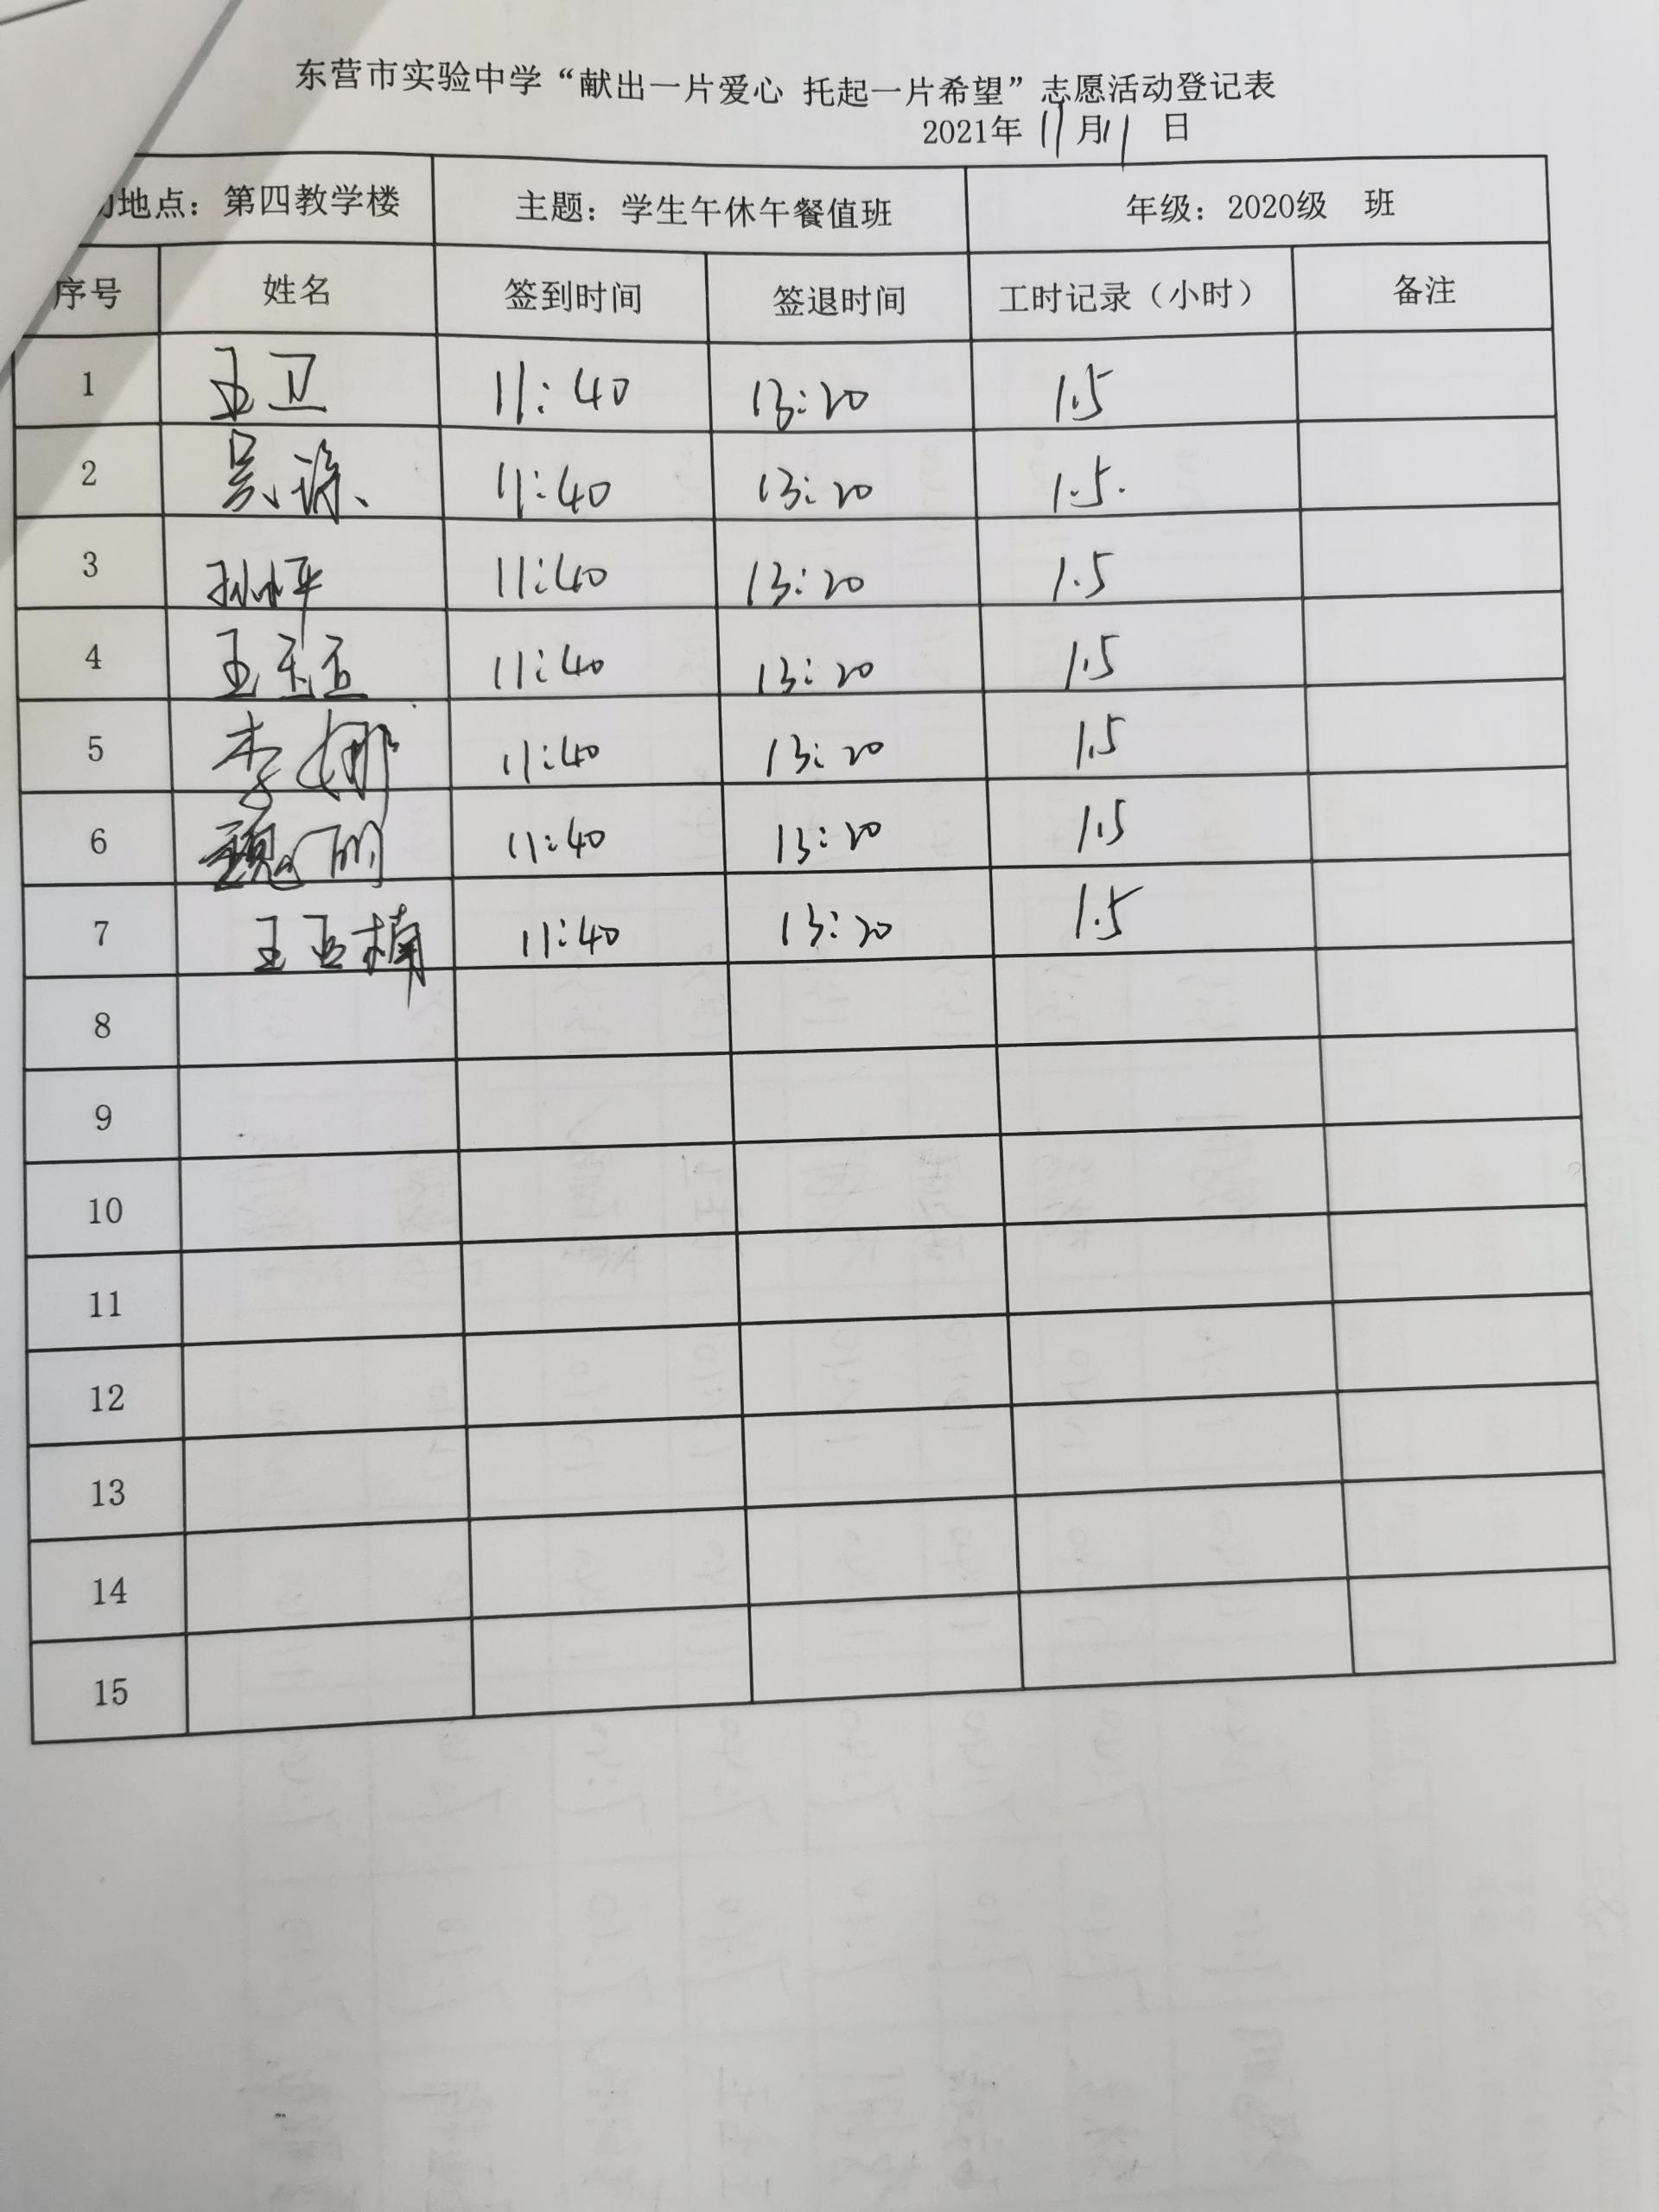 东营市实验中学“献出一片爱心 托起一片希望”志愿活动登记表
2021年 11月11日
地点：第四教学楼 主题：学生午休午餐值班 年级：2020级 班
序号 姓名 签到时间 签退时间 工时记录（小时） 备注
1 王卫 11:40 13:20 1.5
2 吴 11:40 13:20 1.5.
3 孙小平 11:40 13:20 1.5
4 王玉 11:40 13:20 1.5
5 李娜 11:40 13:20 1.5
6 魏 11:40 13:20 1.5
7 王亚楠 11:40 13:20 1.5
8
9
10
11
12
13
14
15